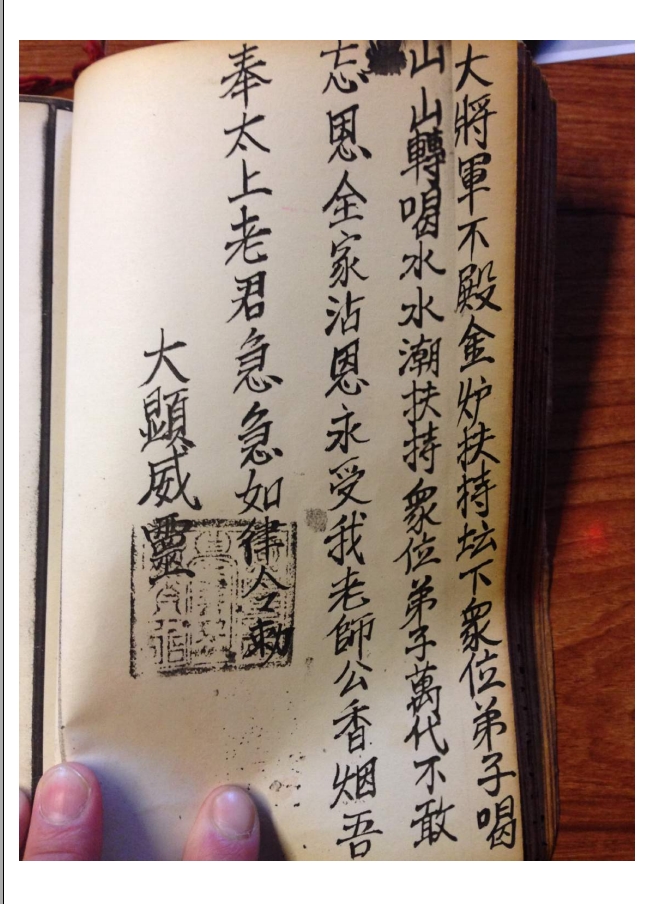 大將軍不殿金炉扶持坛下衆位弟子喝
山山轉喝水水潮扶持衆位弟子萬代不敢
忘恩全家沾恩永受我老師公香烟吾
奉太上老君急急如律令勅
大顯威靈